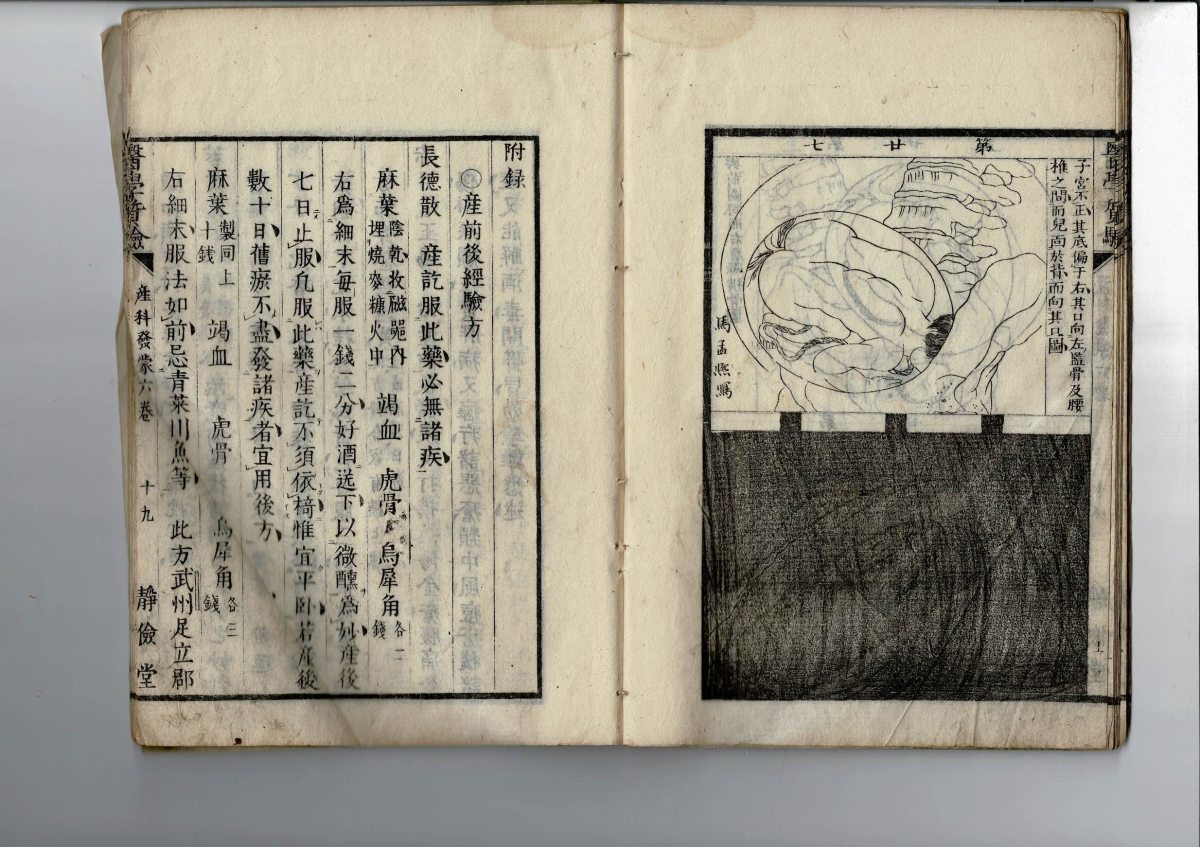 第廿七
子宮不正其底偏于右其口向左髋骨及腰
椎之間而兒面於背而向其口圖
馬孟熙寫
附録
○産前後經驗方
長德散 産訖服此藥必無諸疾
麻葉 陰乾收磁噐内埋燒麥糠火中 竭血 虎骨 烏犀角 各二錢
右爲細末每服一錢二分好酒送下以微醺爲妙産後
七日止服凢服此藥産訖不須依𣗳惟宜平卧若産後
數十日舊瘀不盡發諸疾者宜用後方
麻葉 製同上十錢 竭血 虎骨 烏犀角 各三錢
右細末服法如前忌青菜川魚等 此方武州足立郡
産科發蒙六卷
十九
靜儉堂